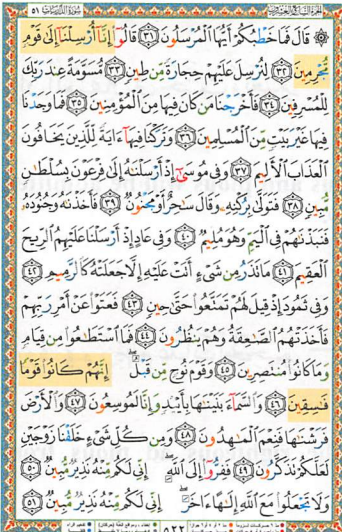 الجزء السابع والعشرون سُورَةُ الذَّارِيَاتِ ٥١
۞ قَالَ فَمَا خَطْبُكُمْ أَيُّهَا ٱلْمُرْسَلُونَ ٣١ قَالُوٓا۟ إِنَّآ أُرْسِلْنَآ إِلَىٰ قَوْمٍ
مُّجْرِمِينَ ٣٢ لِنُرْسِلَ عَلَيْهِمْ حِجَارَةً مِّن طِينٍ ٣٣ مُّسَوَّمَةً عِندَ رَبِّكَ
لِلْمُسْرِفِينَ ٣٤ فَأَخْرَجْنَا مَن كَانَ فِيهَا مِنَ ٱلْمُؤْمِنِينَ ٣٥ فَمَا وَجَدْنَا
فِيهَا غَيْرَ بَيْتٍ مِّنَ ٱلْمُسْلِمِينَ ٣٦ وَتَرَكْنَا فِيهَآ ءَايَةً لِّلَّذِينَ يَخَافُونَ
ٱلْعَذَابَ ٱلْأَلِيمَ ٣٧ وَفِى مُوسَىٰٓ إِذْ أَرْسَلْنَٰهُ إِلَىٰ فِرْعَوْنَ بِسُلْطَٰنٍ
مُّبِينٍ ٣٨ فَتَوَلَّىٰ بِرُكْنِهِۦ وَقَالَ سَٰحِرٌ أَوْ مَجْنُونٌ ٣٩ فَأَخَذْنَٰهُ وَجُنُودَهُۥ
فَنَبَذْنَٰهُمْ فِى ٱلْيَمِّ وَهُوَ مُلِيمٌ ٤٠ وَفِى عَادٍ إِذْ أَرْسَلْنَا عَلَيْهِمُ ٱلرِّيحَ
ٱلْعَقِيمَ ٤١ مَا تَذَرُ مِن شَىْءٍ أَتَتْ عَلَيْهِ إِلَّا جَعَلَتْهُ كَٱلرَّمِيمِ ٤٢
وَفِى ثَمُودَ إِذْ قِيلَ لَهُمْ تَمَتَّعُوا۟ حَتَّىٰ حِينٍ ٤٣ فَعَتَوْا۟ عَنْ أَمْرِ رَبِّهِمْ
فَأَخَذَتْهُمُ ٱلصَّٰعِقَةُ وَهُمْ يَنظُرُونَ ٤٤ فَمَا ٱسْتَطَٰعُوا۟ مِن قِيَامٍ
وَمَا كَانُوا۟ مُنتَصِرِينَ ٤٥ وَقَوْمَ نُوحٍ مِّن قَبْلُ ۖ إِنَّهُمْ كَانُوا۟ قَوْمًا
فَٰسِقِينَ ٤٦ وَٱلسَّمَآءَ بَنَيْنَٰهَا بِأَيْي۟دٍ وَإِنَّا لَمُوسِعُونَ ٤٧ وَٱلْأَرْضَ
فَرَشْنَٰهَا فَنِعْمَ ٱلْمَٰهِدُونَ ٤٨ وَمِن كُلِّ شَىْءٍ خَلَقْنَا زَوْجَيْنِ
لَعَلَّكُمْ تَذَكَّرُونَ ٤٩ فَفِرُّوٓا۟ إِلَى ٱللَّهِ ۖ إِنِّى لَكُم مِّنْهُ نَذِيرٌ مُّبِينٌ ٥٠
وَلَا تَجْعَلُوا۟ مَعَ ٱللَّهِ إِلَٰهًا ءَاخَرَ ۖ إِنِّى لَكُم مِّنْهُ نَذِيرٌ مُّبِينٌ ٥١